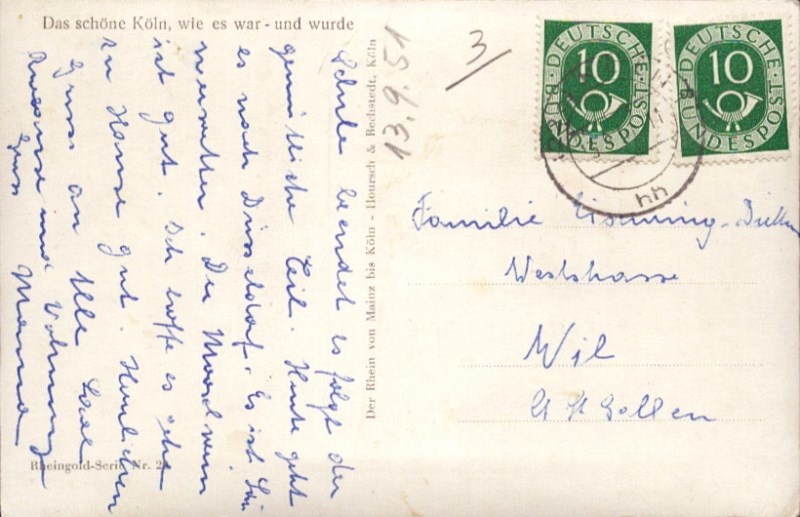 Das schöne Köln, wie es war - und wurde
Schule beendet es folgt der
gemütliche Teil. Heute geht
es nach Düsseldorf. Es ist
Der Moselwein
ist gut. Ich hoffe es gehe
zu Hause gut. Herzlichen
Gruss an Alle
und
Gruss Mamma
Rheingold-Serie Nr. 2
Der Rhein von Mainz bis Köln - Hoursch & Bechstedt, Köln
13.9.51
3
DEUTSCHE BUNDESPOST
10
DEUTSCHE BUNDESPOST
10
hh
Familie
Weststrasse
Wil
Kt St Gallen